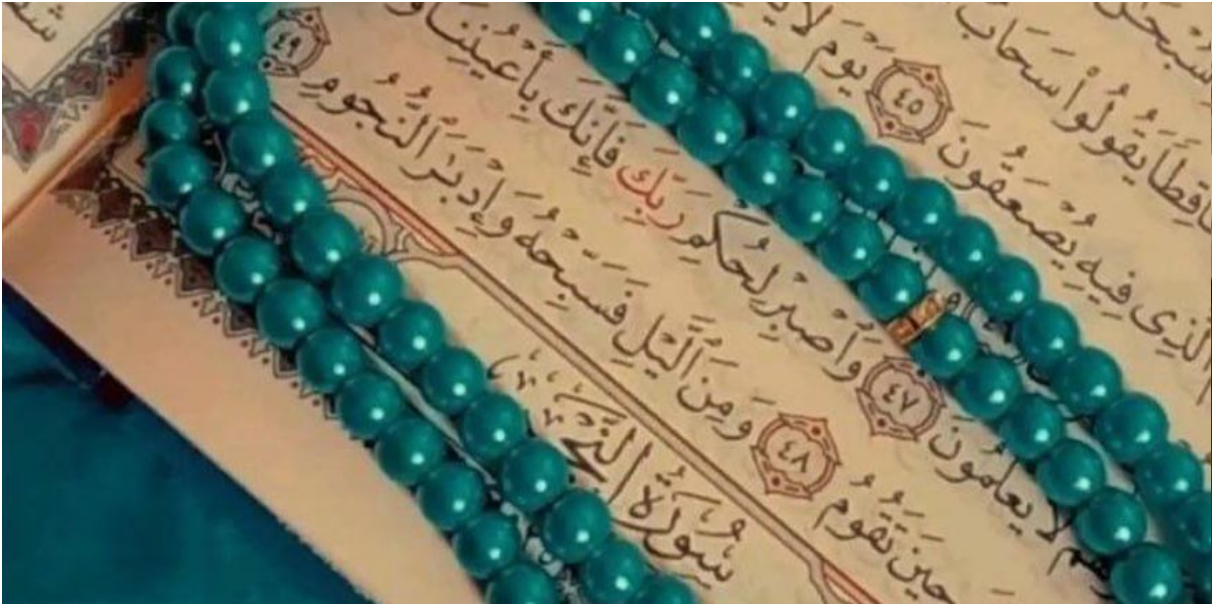 سَاقِطًا يَقُولُوا۟ سَحَابٌ
ٱلَّذِى فِيهِ يُصْعَقُونَ ٤٥ يَوْمَ لَا
لَا يَعْلَمُونَ ٤٧ وَٱصْبِرْ لِحُكْمِ رَبِّكَ فَإِنَّكَ بِأَعْيُنِنَا
حِينَ تَقُومُ ٤٨ وَمِنَ ٱلَّيْلِ فَسَبِّحْهُ وَإِدْبَٰرَ ٱلنُّجُومِ ٤٩
سُورَةُ النَّجْمِ